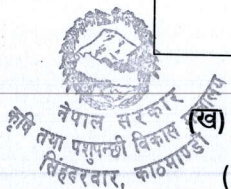 नेपाल सरकार
कृषि तथा पशुपन्छी विकास मन्त्रालय
सिंहदरबार, काठमाण्डौ
(ख)
(